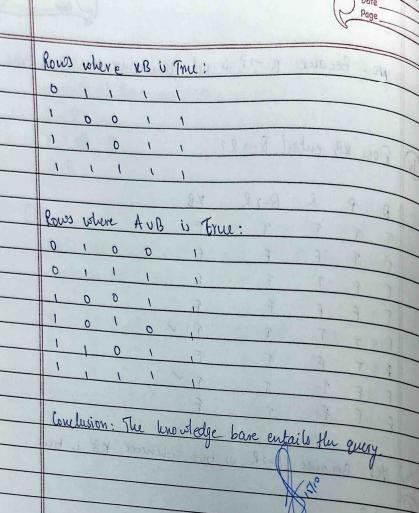 Date
Page
Rows where KB is True:
0 1 1 1 1
1 0 0 1 1
1 1 0 1 1
1 1 1 1 1
Rows where A∪B is True:
0 1 0 0 1
0 1 1 1 1
1 0 0 1 1
1 0 1 0 1
1 1 0 1 1
1 1 1 1 1
Conclusion: The knowledge base entails the query.